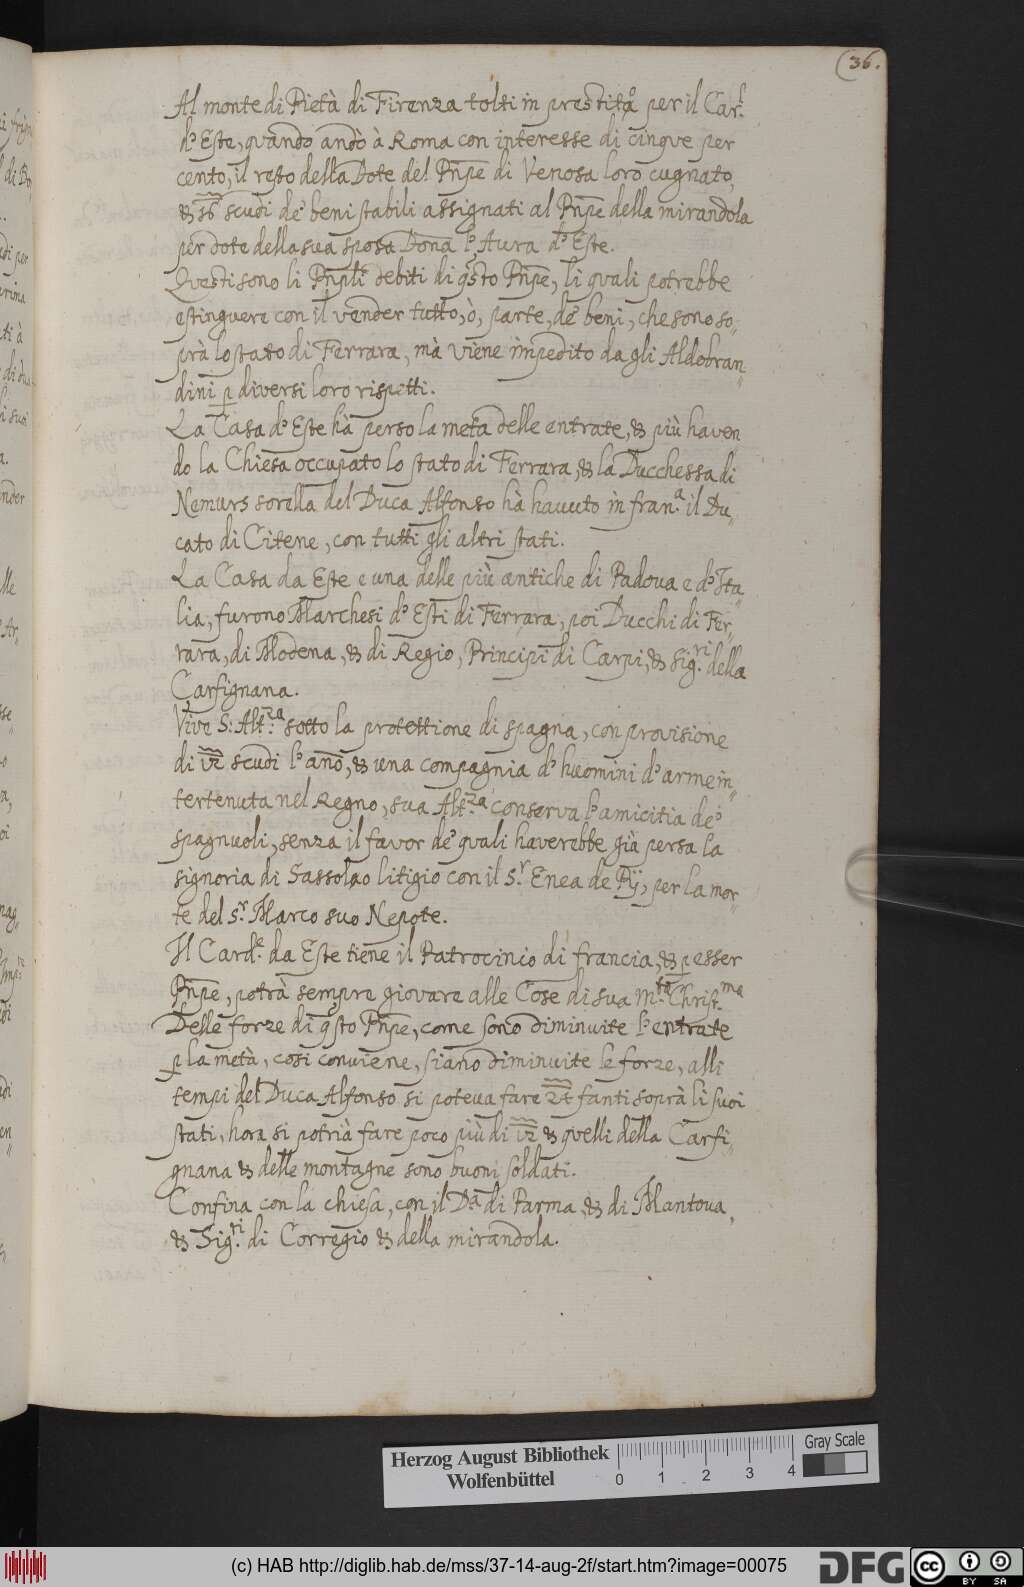 36.
Al monte di Pietà di Firenza tolti in prestito per il Car.l
d'Este, quando andò à Roma con interesse di cinque per
cento, il resto della Dote del Prīpe di Venosa loro cugnato,
& scudi de' beni stabili assignati al Prīpe della mirandola
per dote della sua sposa Dona l'Aura d'Este.
Questi sono li Prīpli debiti di q̄sto Prīpe, li quali potrebbe
estinguere con il vender tutto, ò, parte, de' beni, che sono so„
prà lo stato di Ferrara, mà viene impedito da gli Aldobran„
dini p diversi loro rispetti.
La Casa d'Este hà perso la metà delle entrate, & più haven
do la Chiesa occupato lo stato di Ferrara, & la Ducchessa di
Nemurs sorella del Duca Alfonso hà havuto in fran.a il Du„
cato di Citene, con tutti gli altri stati.
La Casa da Este e una delle più antiche di Padova e d'Ita„
lia, furono Marchesi d'Esti di Ferrara, poi Ducchi di Fer„
rara, di Modena, & di Regio, Principi di Carpi, & Sig.ri della
Carfignana.
Vive S: Alt.za sotto la protettione di spagna, con provisione
di scudi l'ano, & una compagnia d'huomini d'arme in„
tertenuta nel Regno, sua Alt.za conserva l'amicitia de'
spagnuoli, senza il favor de' quali haverebbe già persa la
signoria di Sassolao litigio con il S.r Enea de Pij, per la mor„
te del S.r Marco suo Nepote.
Il Card.e da Este tiene il Patrocinio di francia, & p esser
Prīpe, potrà sempre giovare alle Cose di sua M.tà Christ.ma
Delle forze di q̄sto Prīpe, come sono diminuite l'entrate
p la metà, cosi conviene, siano diminuite le forze, alli
tempi del Duca Alfonso si poteva fare fanti soprà li suoi
stati, hora si potrià fare poco più di & quelli della Carfi„
gnana & delle montagne sono buoni soldati.
Confina con la chiesa, con il D.a di Parma, & di Mantova,
& Sig.ri di Corregio & della mirandola.
Herzog August Bibliothek
Wolfenbüttel
0 1 2 3 4
Gray Scale
(c) HAB http://diglib.hab.de/mss/37-14-aug-2f/start.htm?image=00075
DFG
cc BY SA